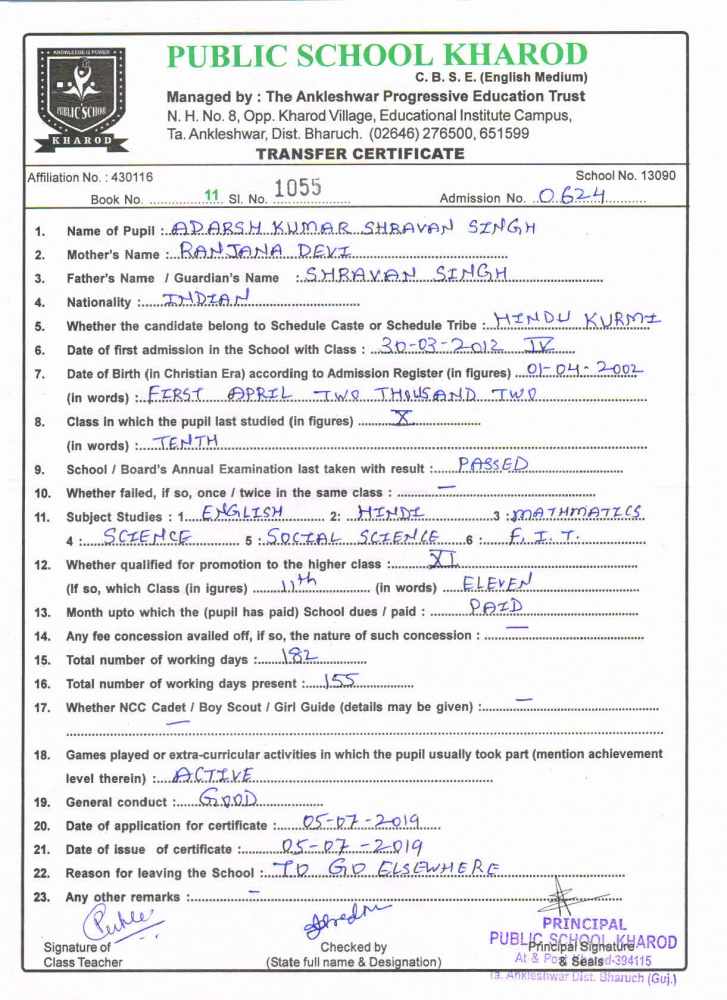 KNOWLEDGE IS POWER
PUBLIC SCHOOL
KHAROD
PUBLIC SCHOOL KHAROD
C. B. S. E. (English Medium)
Managed by : The Ankleshwar Progressive Education Trust
N. H. No. 8, Opp. Kharod Village, Educational Institute Campus,
Ta. Ankleshwar, Dist. Bharuch. (02646) 276500, 651599
TRANSFER CERTIFICATE
Affiliation No. : 430116 School No. 13090
Book No. 11 Sl. No. 1055 Admission No. 0624
1. Name of Pupil : ADARSH KUMAR SHRAVAN SINGH
2. Mother's Name : RANJANA DEVI
3. Father's Name / Guardian's Name : SHRAVAN SINGH
4. Nationality : INDIAN
5. Whether the candidate belong to Schedule Caste or Schedule Tribe : HINDU KURMI
6. Date of first admission in the School with Class : 30-03-2012 IV
7. Date of Birth (in Christian Era) according to Admission Register (in figures) 01-04-2002
(in words) : FIRST APRIL TWO THOUSAND TWO
8. Class in which the pupil last studied (in figures) X
(in words) : TENTH
9. School / Board's Annual Examination last taken with result : PASSED
10. Whether failed, if so, once / twice in the same class : —
11. Subject Studies : 1. ENGLISH 2: HINDI 3 : MATHMATICS
4 : SCIENCE 5 : SOCIAL SCIENCE 6 : F. I. T.
12. Whether qualified for promotion to the higher class : XI
(If so, which Class (in igures) 11th (in words) ELEVEN
13. Month upto which the (pupil has paid) School dues / paid : PAID
14. Any fee concession availed off, if so, the nature of such concession : —
15. Total number of working days : 182
16. Total number of working days present : 155
17. Whether NCC Cadet / Boy Scout / Girl Guide (details may be given) : —
—
18. Games played or extra-curricular activities in which the pupil usually took part (mention achievement
level therein) : ACTIVE
19. General conduct : GOOD
20. Date of application for certificate : 05-07-2019
21. Date of issue of certificate : 05-07-2019
22. Reason for leaving the School : TO GO ELSEWHERE
23. Any other remarks : —
PRINCIPAL
PUBLIC SCHOOL KHAROD
Signature of Checked by Principal Signature
Class Teacher (State full name & Designation) & Seals
At & Post Kharod-394115
Ta. Ankleshwar Dist. Bharuch (Guj.)